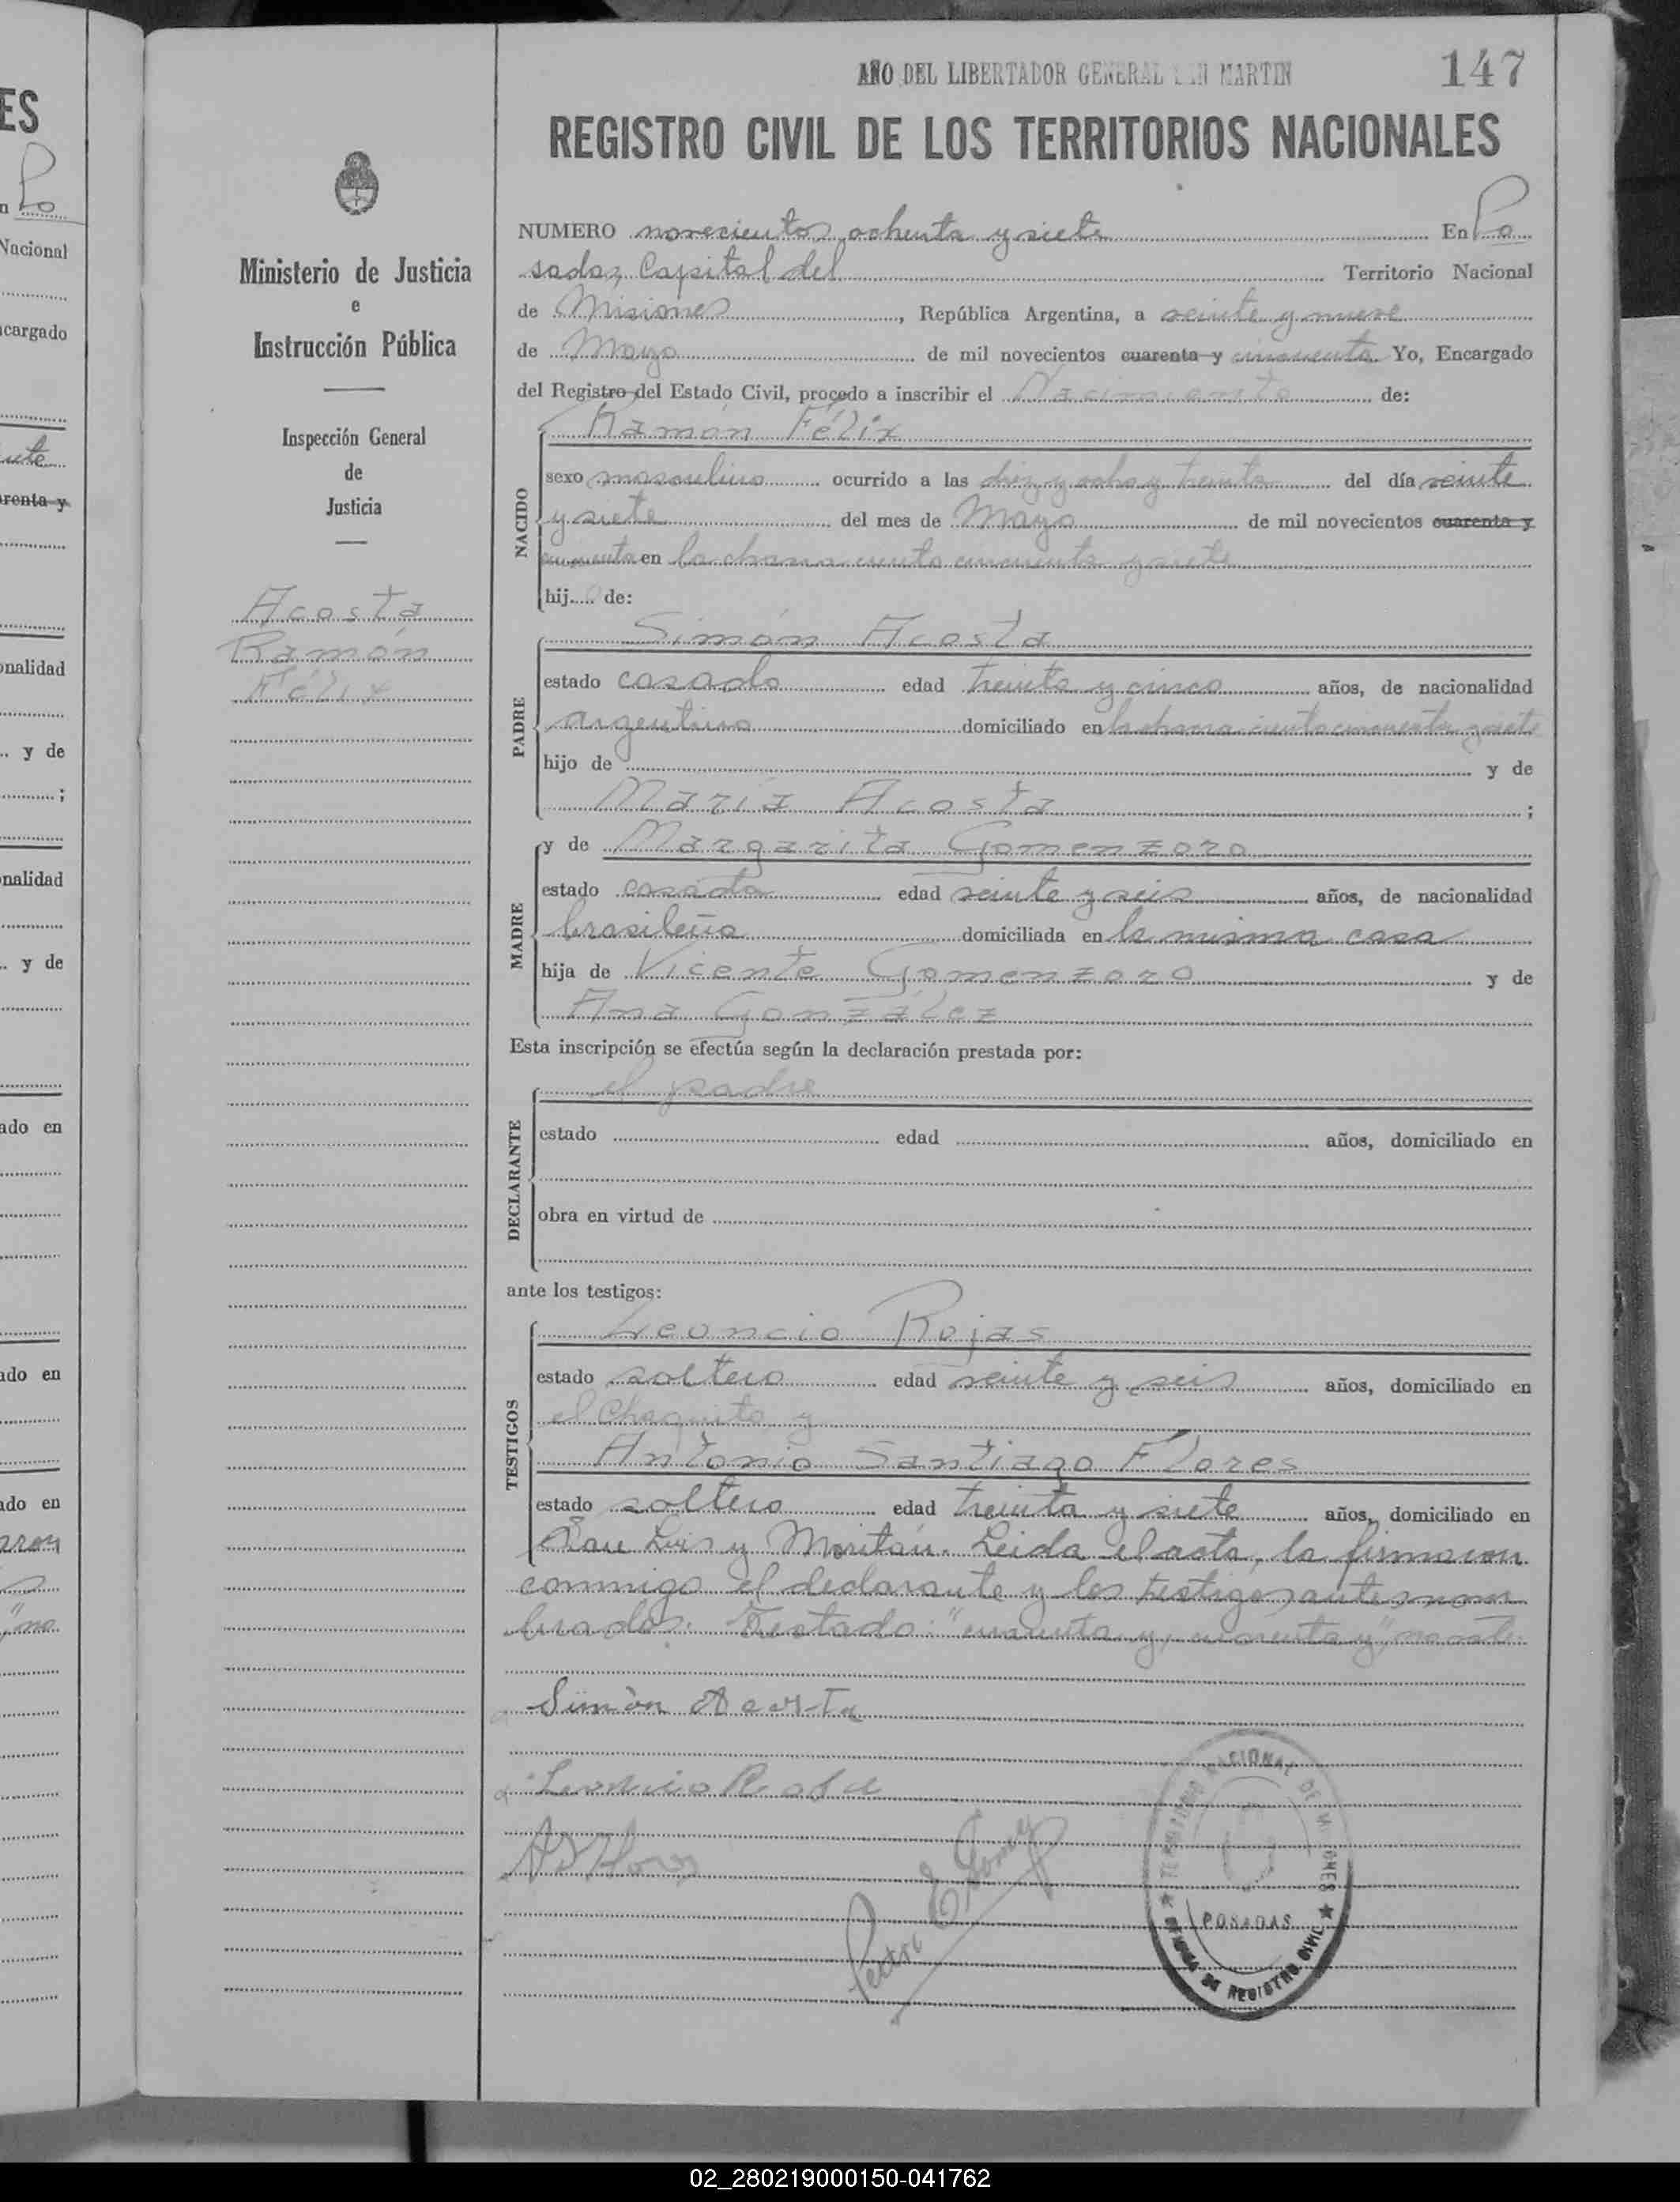 AÑO DEL LIBERTADOR GENERAL SAN MARTIN
147
REGISTRO CIVIL DE LOS TERRITORIOS NACIONALES
Ministerio de Justicia
e
Instrucción Pública
Inspección General
de
Justicia
Acosta
Ramón
Félix
NUMERO novecientos ochenta y siete En Po
sadas, Capital del Territorio Nacional
de Misiones, República Argentina, a veinte y nueve
de Mayo de mil novecientos cuarenta y cincuenta Yo, Encargado
del Registro del Estado Civil, procedo a inscribir el Nacimiento de:
NACIDO
Ramón Félix
sexo masculino ocurrido a las diez y ocho y treinta del día veinte
y siete del mes de Mayo de mil novecientos cuarenta y
cincuenta en la chacra ciento cincuenta y siete
hijo de:
PADRE
Simón Acosta
estado casado edad treinta y cinco años, de nacionalidad
argentino domiciliado en la chacra ciento cincuenta y siete
hijo de y de
María Acosta ;
MADRE
y de Margarita Gomenzoro
estado casada edad veinte y seis años, de nacionalidad
brasileña domiciliada en la misma casa
hija de Vicente Gomenzoro y de
Ana González
Esta inscripción se efectúa según la declaración prestada por:
DECLARANTE
el padre
estado edad años, domiciliado en
obra en virtud de
ante los testigos:
TESTIGOS
Leoncio Rojas
estado soltero edad veinte y seis años, domiciliado en
el Chaquito y
Antonio Santiago Flores
estado soltero edad treinta y siete años, domiciliado en
San Luis y Moritán. Leida el acta, la firmaron
conmigo el declarante y los testigos antes nom
brados. Testado: "cuarenta y, cuarenta y", no vale.
Simón Acosta
Leoncio Rojas
A S Flores
Pedro E Gomez
TERRITORIO NACIONAL DE MISIONES
POSADAS
OFICINA DE REGISTRO CIVIL
02_280219000150-041762